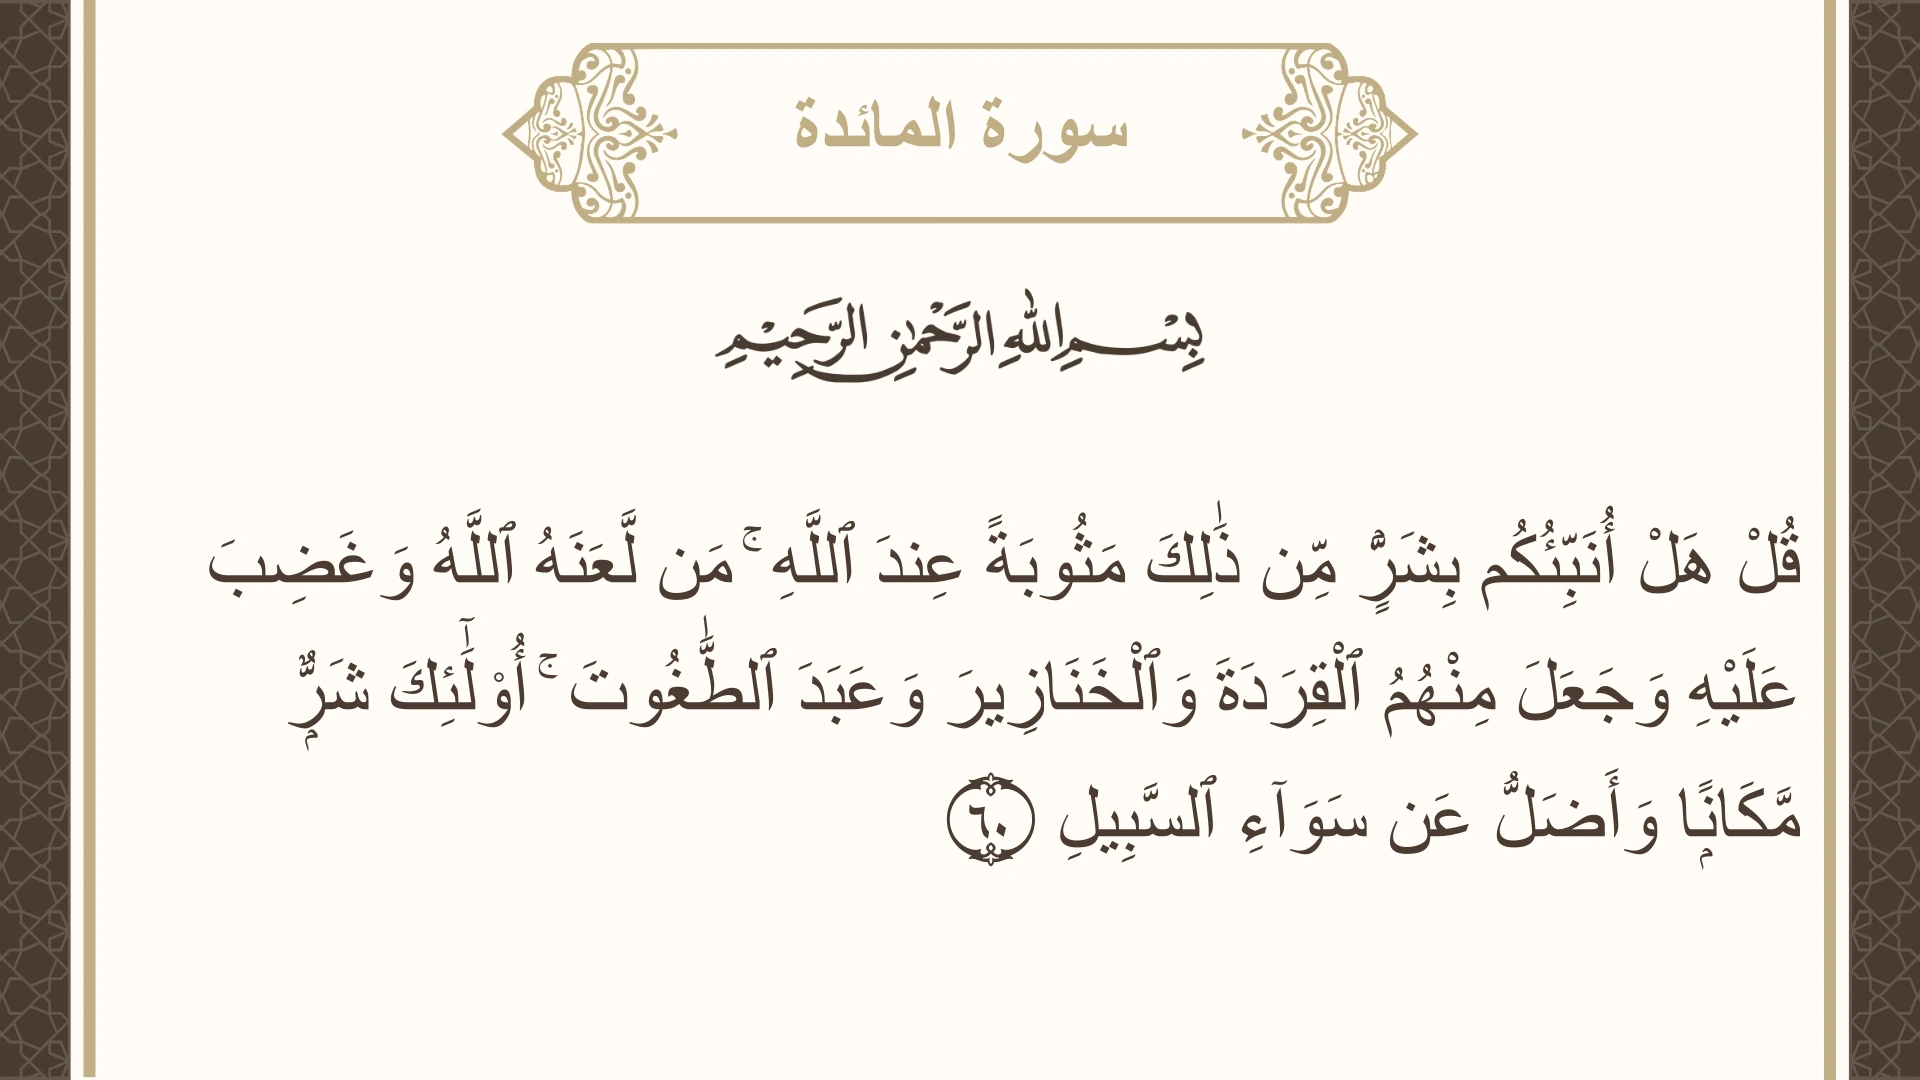 سورة المائدة
بِسْمِ اللهِ الرَّحْمٰنِ الرَّحِيْمِ
قُلْ هَلْ أُنَبِّئُكُم بِشَرٍّۢ مِّن ذَٰلِكَ مَثُوبَةً عِندَ ٱللَّهِ ۚ مَن لَّعَنَهُ ٱللَّهُ وَغَضِبَ
عَلَيْهِ وَجَعَلَ مِنْهُمُ ٱلْقِرَدَةَ وَٱلْخَنَازِيرَ وَعَبَدَ ٱلطَّٰغُوتَ ۚ أُو۟لَٰٓئِكَ شَرٌّۭ
مَّكَانًۭا وَأَضَلُّ عَن سَوَآءِ ٱلسَّبِيلِ ٦٠